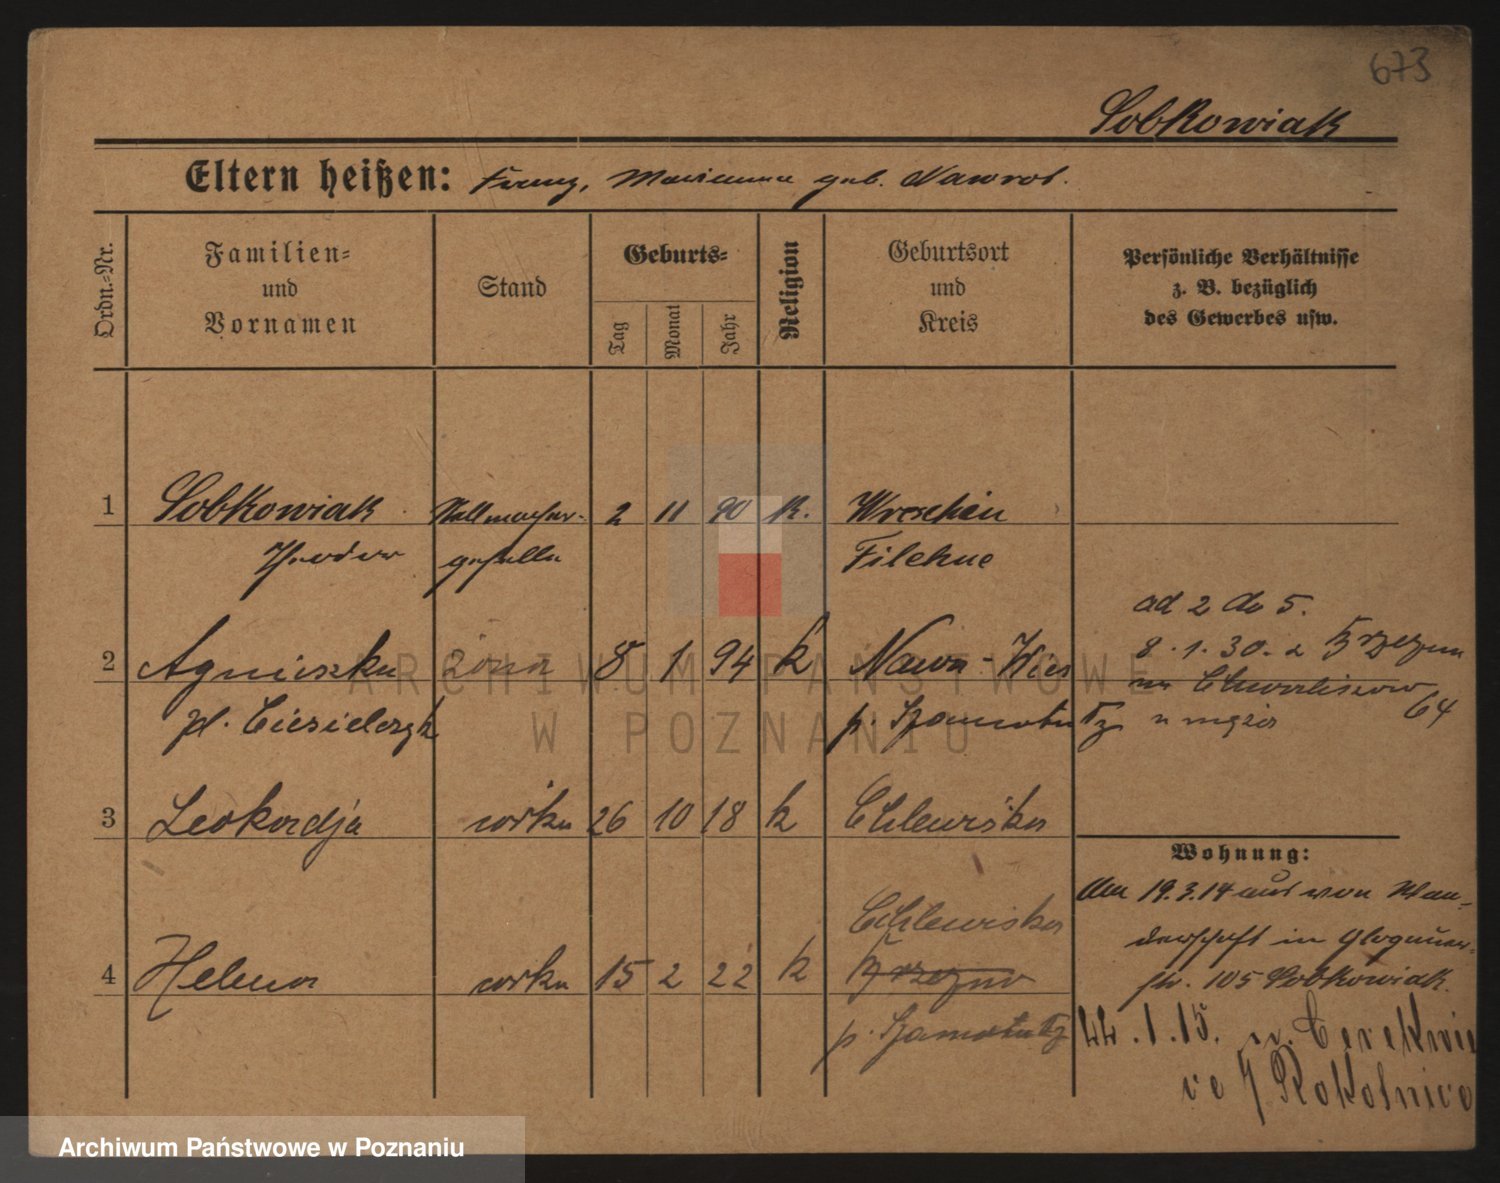 673
Sobkowiak
Eltern heißen: Franz, Marianna geb. Nawrot.
Ordn.=Nr.
Familien=
und
Vornamen
Stand
Geburts=
Tag
Monat
Jahr
Religion
Geburtsort
und
Kreis
Persönliche Verhältnisse
z. B. bezüglich
des Gewerbes usw.
1 Sobkowiak Stellmacher- 2 11 90 k. Wreschin
Theodor geselle Filehne
ad 2 do 5.
2 Agnieszka żona 8 1 94 k Nowa-Wies
8.1.30. z Brzezna
na
p. Szamotuły
z. Ciesielczyk
64
3 Leokadja córka 26 10 18 k Chlewiska
Wohnung:
Am 19.3.14 aus von Wan-
derschaft in Glogauer-
str. 105 Sobkowiak.
Chlewiska
4 Helena córka 15 2 22 k Brzezno
p. Szamotuły
22.1.15. n. Cerekwi
ce / Rokolnice
ARCHIWUM PAŃSTWOWE
W POZNANIU
Archiwum Państwowe w Poznaniu